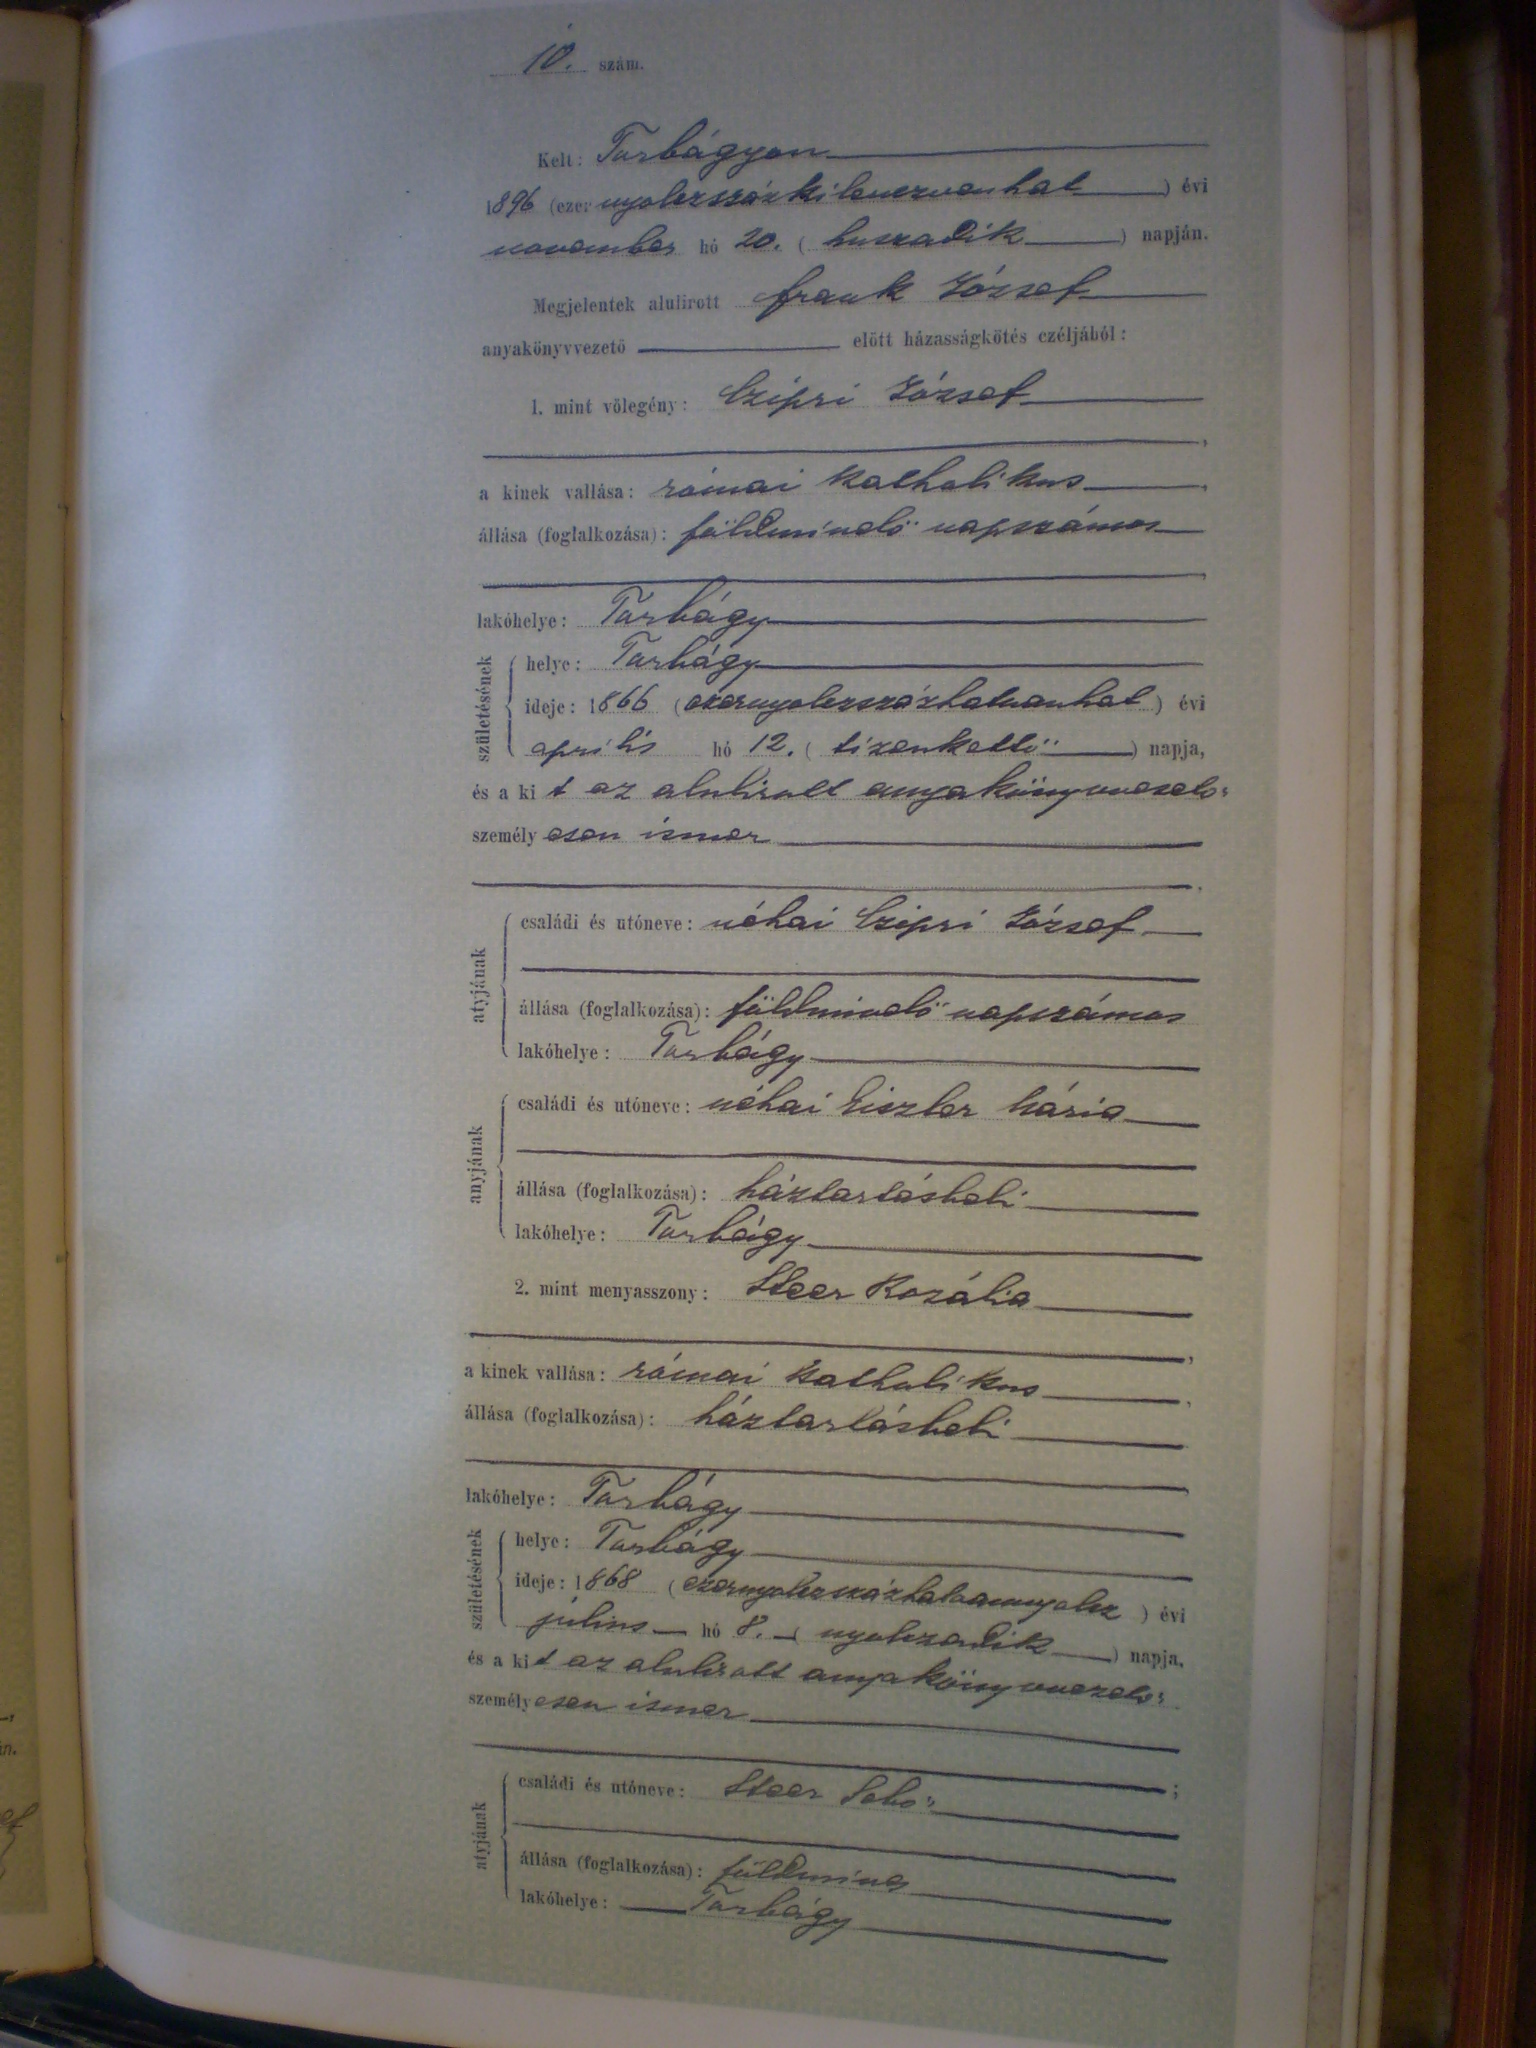 10. szám.
Kelt: Torbágyon
1896 (ezernyolczszázkilenczvenhat) évi
november hó 20. (huszadik) napján.
Megjelentek alulirott Frank József
anyakönyvvezető előtt házasságkötés czéljából:
1. mint vőlegény: Czipri József
a kinek vallása: római katholikus,
állása (foglalkozása): földmivelő napszámos
lakóhelye: Torbágy
születésének
helye: Torbágy
ideje: 1866 (ezernyolczszázhatvanhat) évi
április hó 12. (tizenkettő) napja,
és a kit az alulirott anyakönyvvezető
személyesen ismer
atyjának
családi és utóneve: néhai Czipri József
állása (foglalkozása): földmivelő napszámos
lakóhelye: Torbágy
anyjának
családi és utóneve: néhai Eiszler Mária
állása (foglalkozása): háztartásbeli
lakóhelye: Torbágy
2. mint menyasszony: Steer Rozália
a kinek vallása: római katholikus,
állása (foglalkozása): háztartásbeli
lakóhelye: Torbágy
születésének
helye: Torbágy
ideje: 1868 (ezernyolczszázhatvannyolcz) évi
július hó 8. (nyolczadik) napja,
és a kit az alulirott anyakönyvvezető
személyesen ismer
atyjának
családi és utóneve: Steer
állása (foglalkozása): földmives
lakóhelye: Torbágy